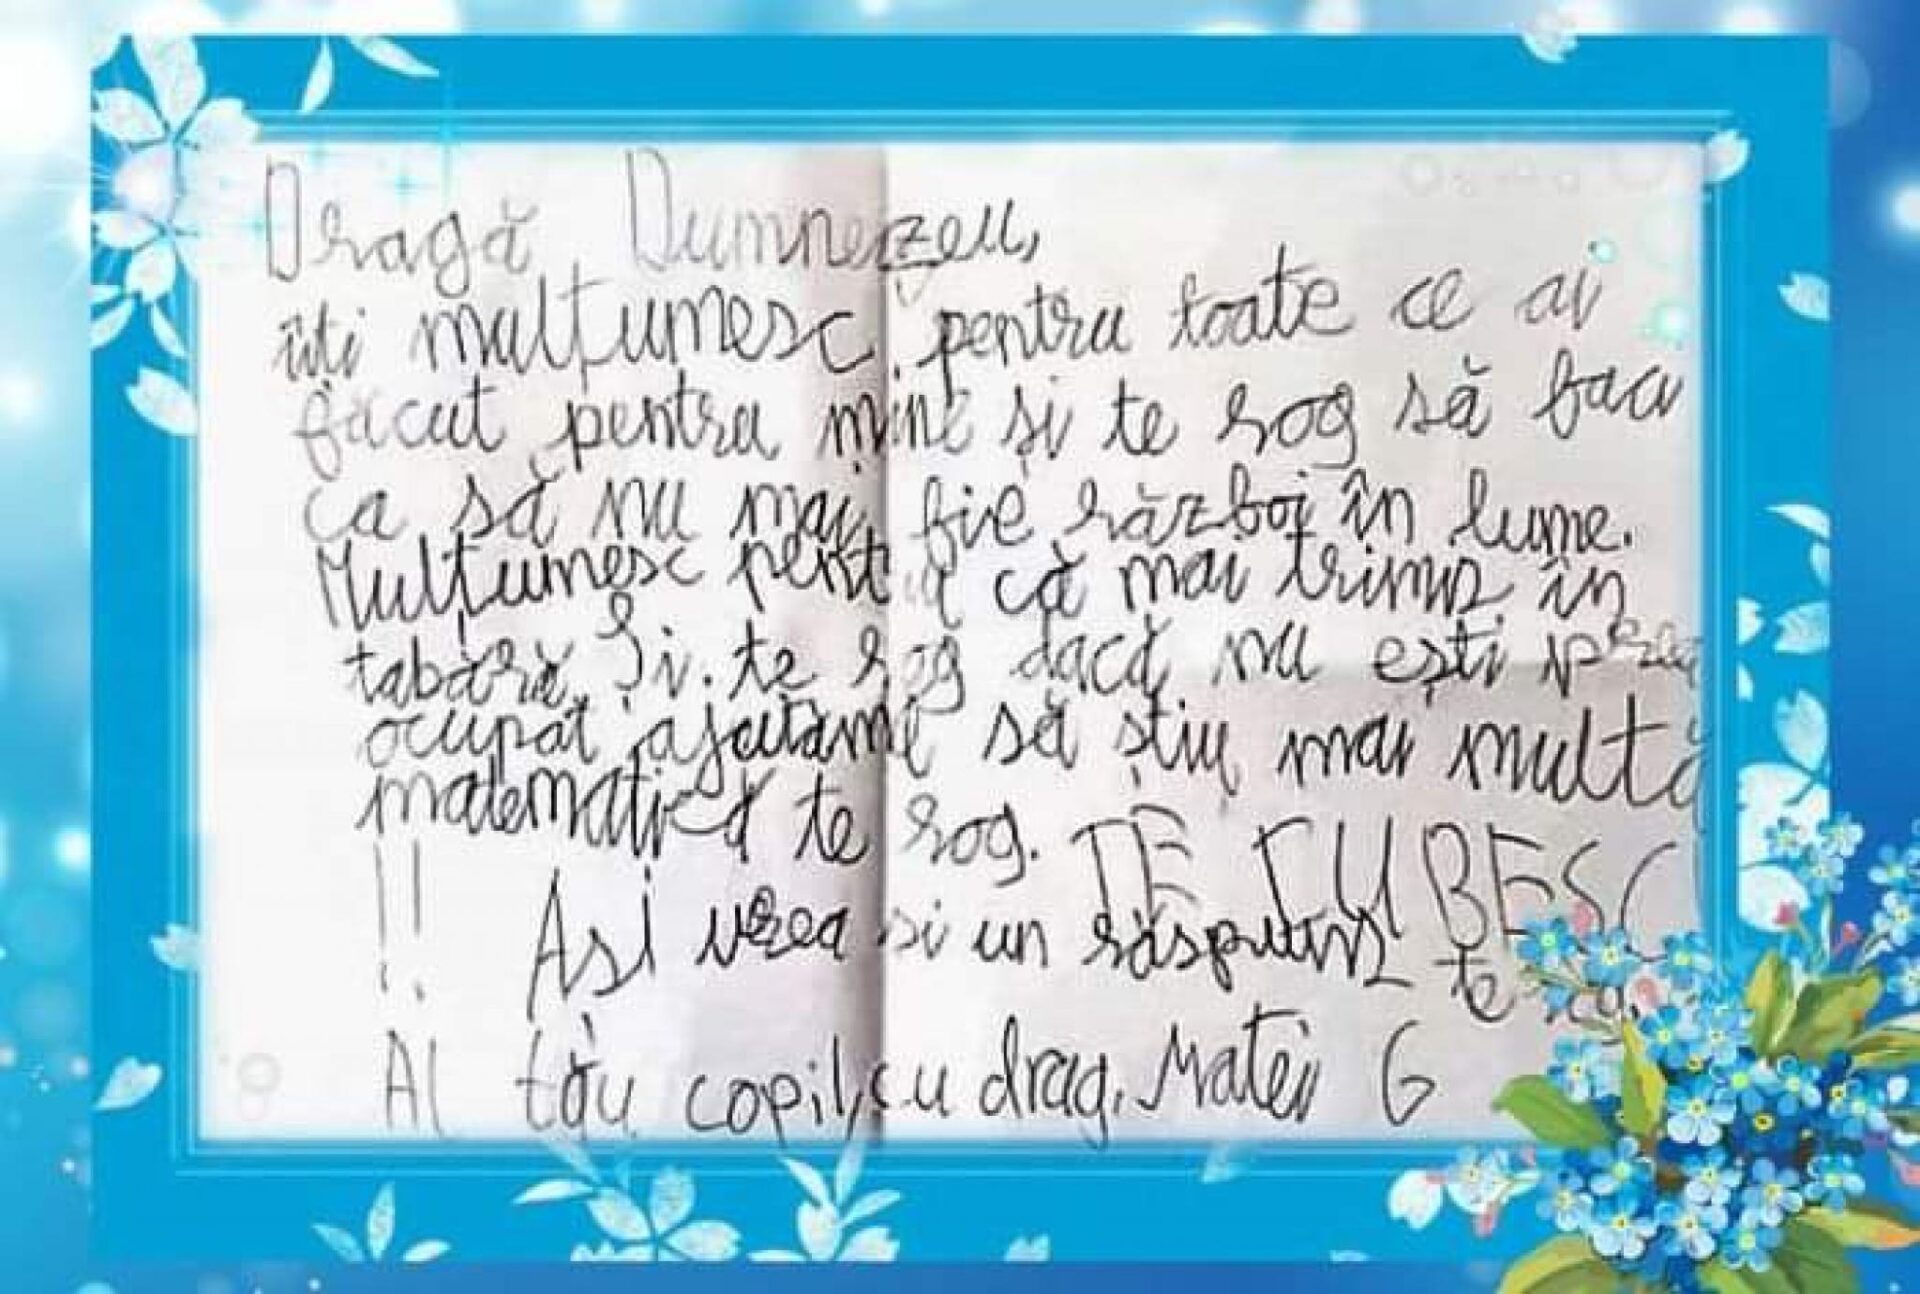 Dragă Dumnezeu,
îiti mulțumesc pentru toate ce ai
făcut pentru mine și te rog să faci
ca să nu mai fie război în lume.
Mulțumesc pentru că mai trimiz în
tabără. Și te rog dacă nu ești prea
ocupat ajutăme să știu mai multă
matematică te rog. TE IUBESC
!! Ași vrea si un răspunz te rog.
Al tău copil, cu drag, Matei G